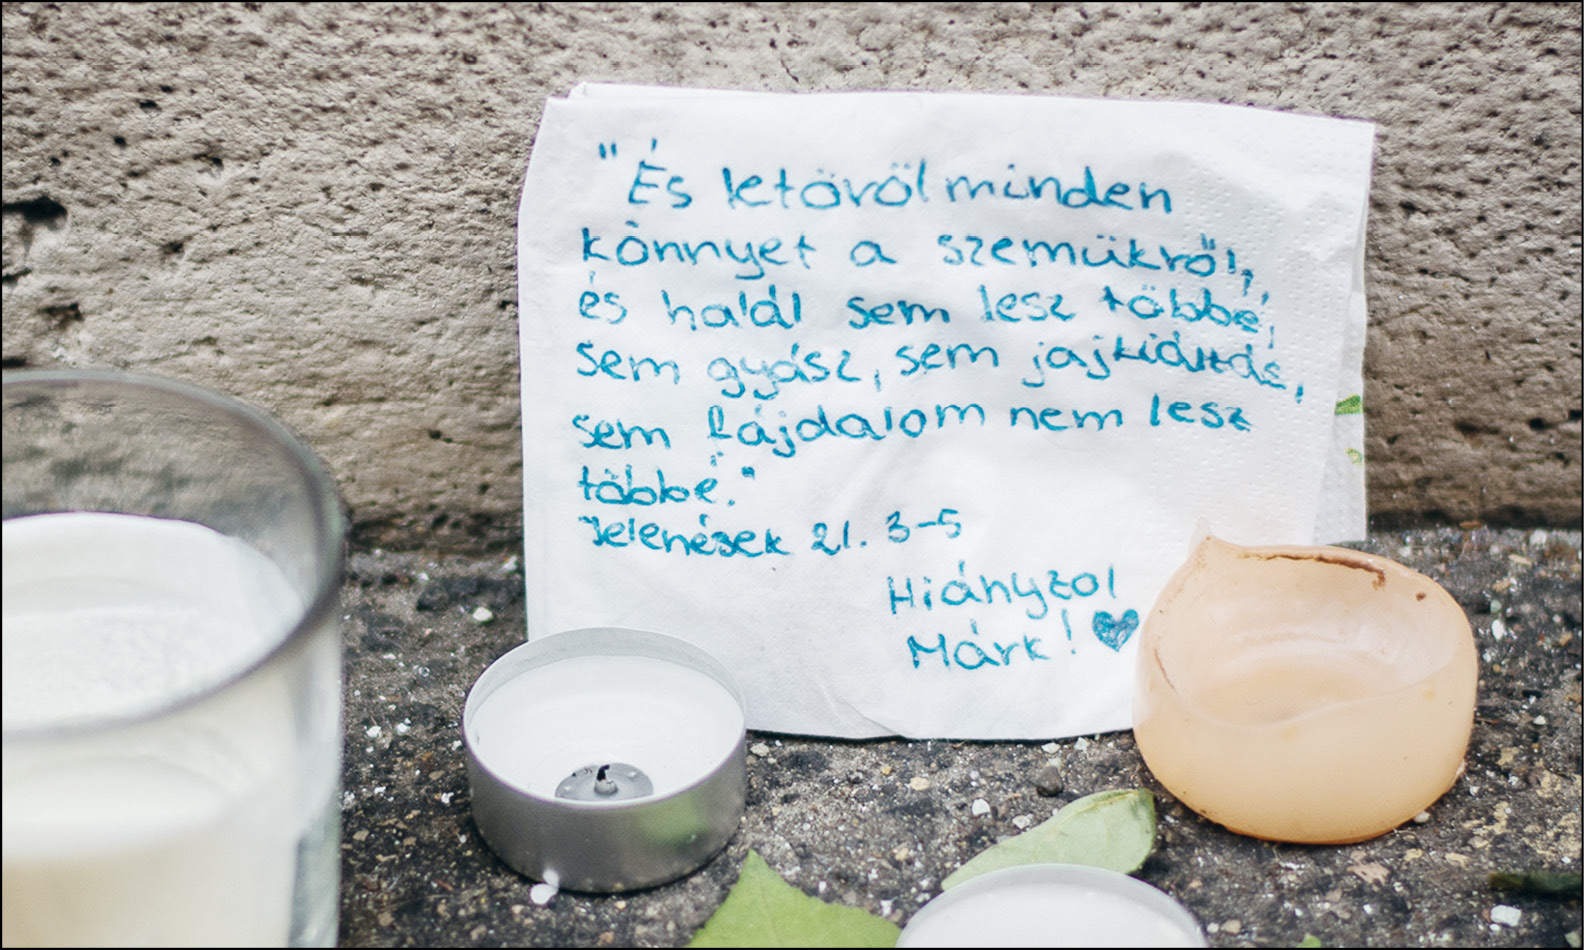 "És letöröl minden
könnyet a szemükről,
és halál sem lesz többé,
sem gyász, sem jajkiáltás,
sem fájdalom nem lesz
többé."
Jelenések 21. 3-5
Hiányzol
Márk! ♥